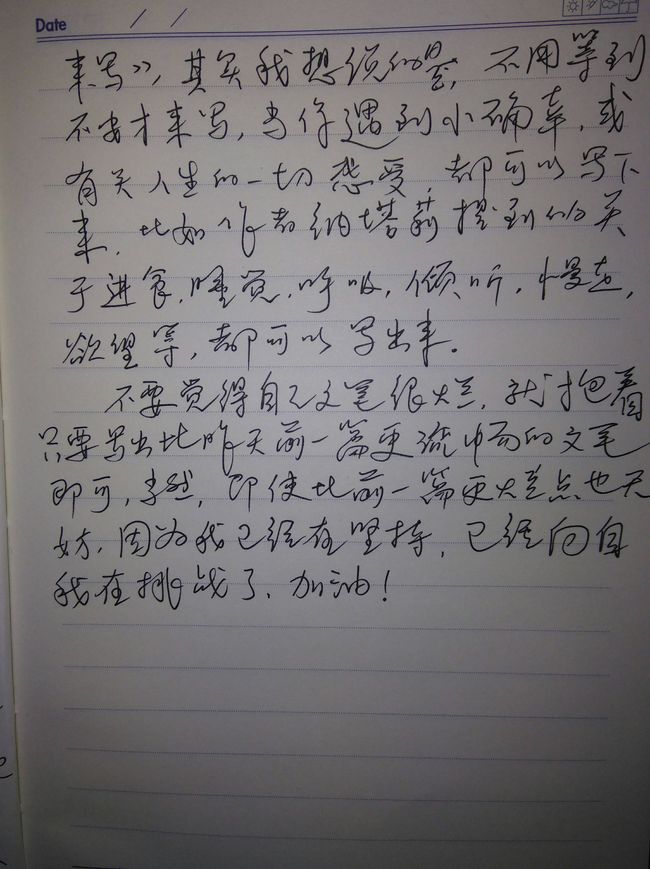 Date / /
来写》，其实我想说的是，不用等到
不安才来写，当你遇到小确幸，或
有关人生的一切感受，都可以写下
来，比如作者纳塔莉提到的关
于进食，睡觉，呼吸，倾听，慢走，
欲望等，都可以写出来。
不要觉得自己文笔很烂，就抱着
只要写出比昨天前一篇更流畅的文笔
即可，当然，即使比前一篇更烂点也无
妨，因为我已经在坚持，已经向自
我在挑战了，加油！